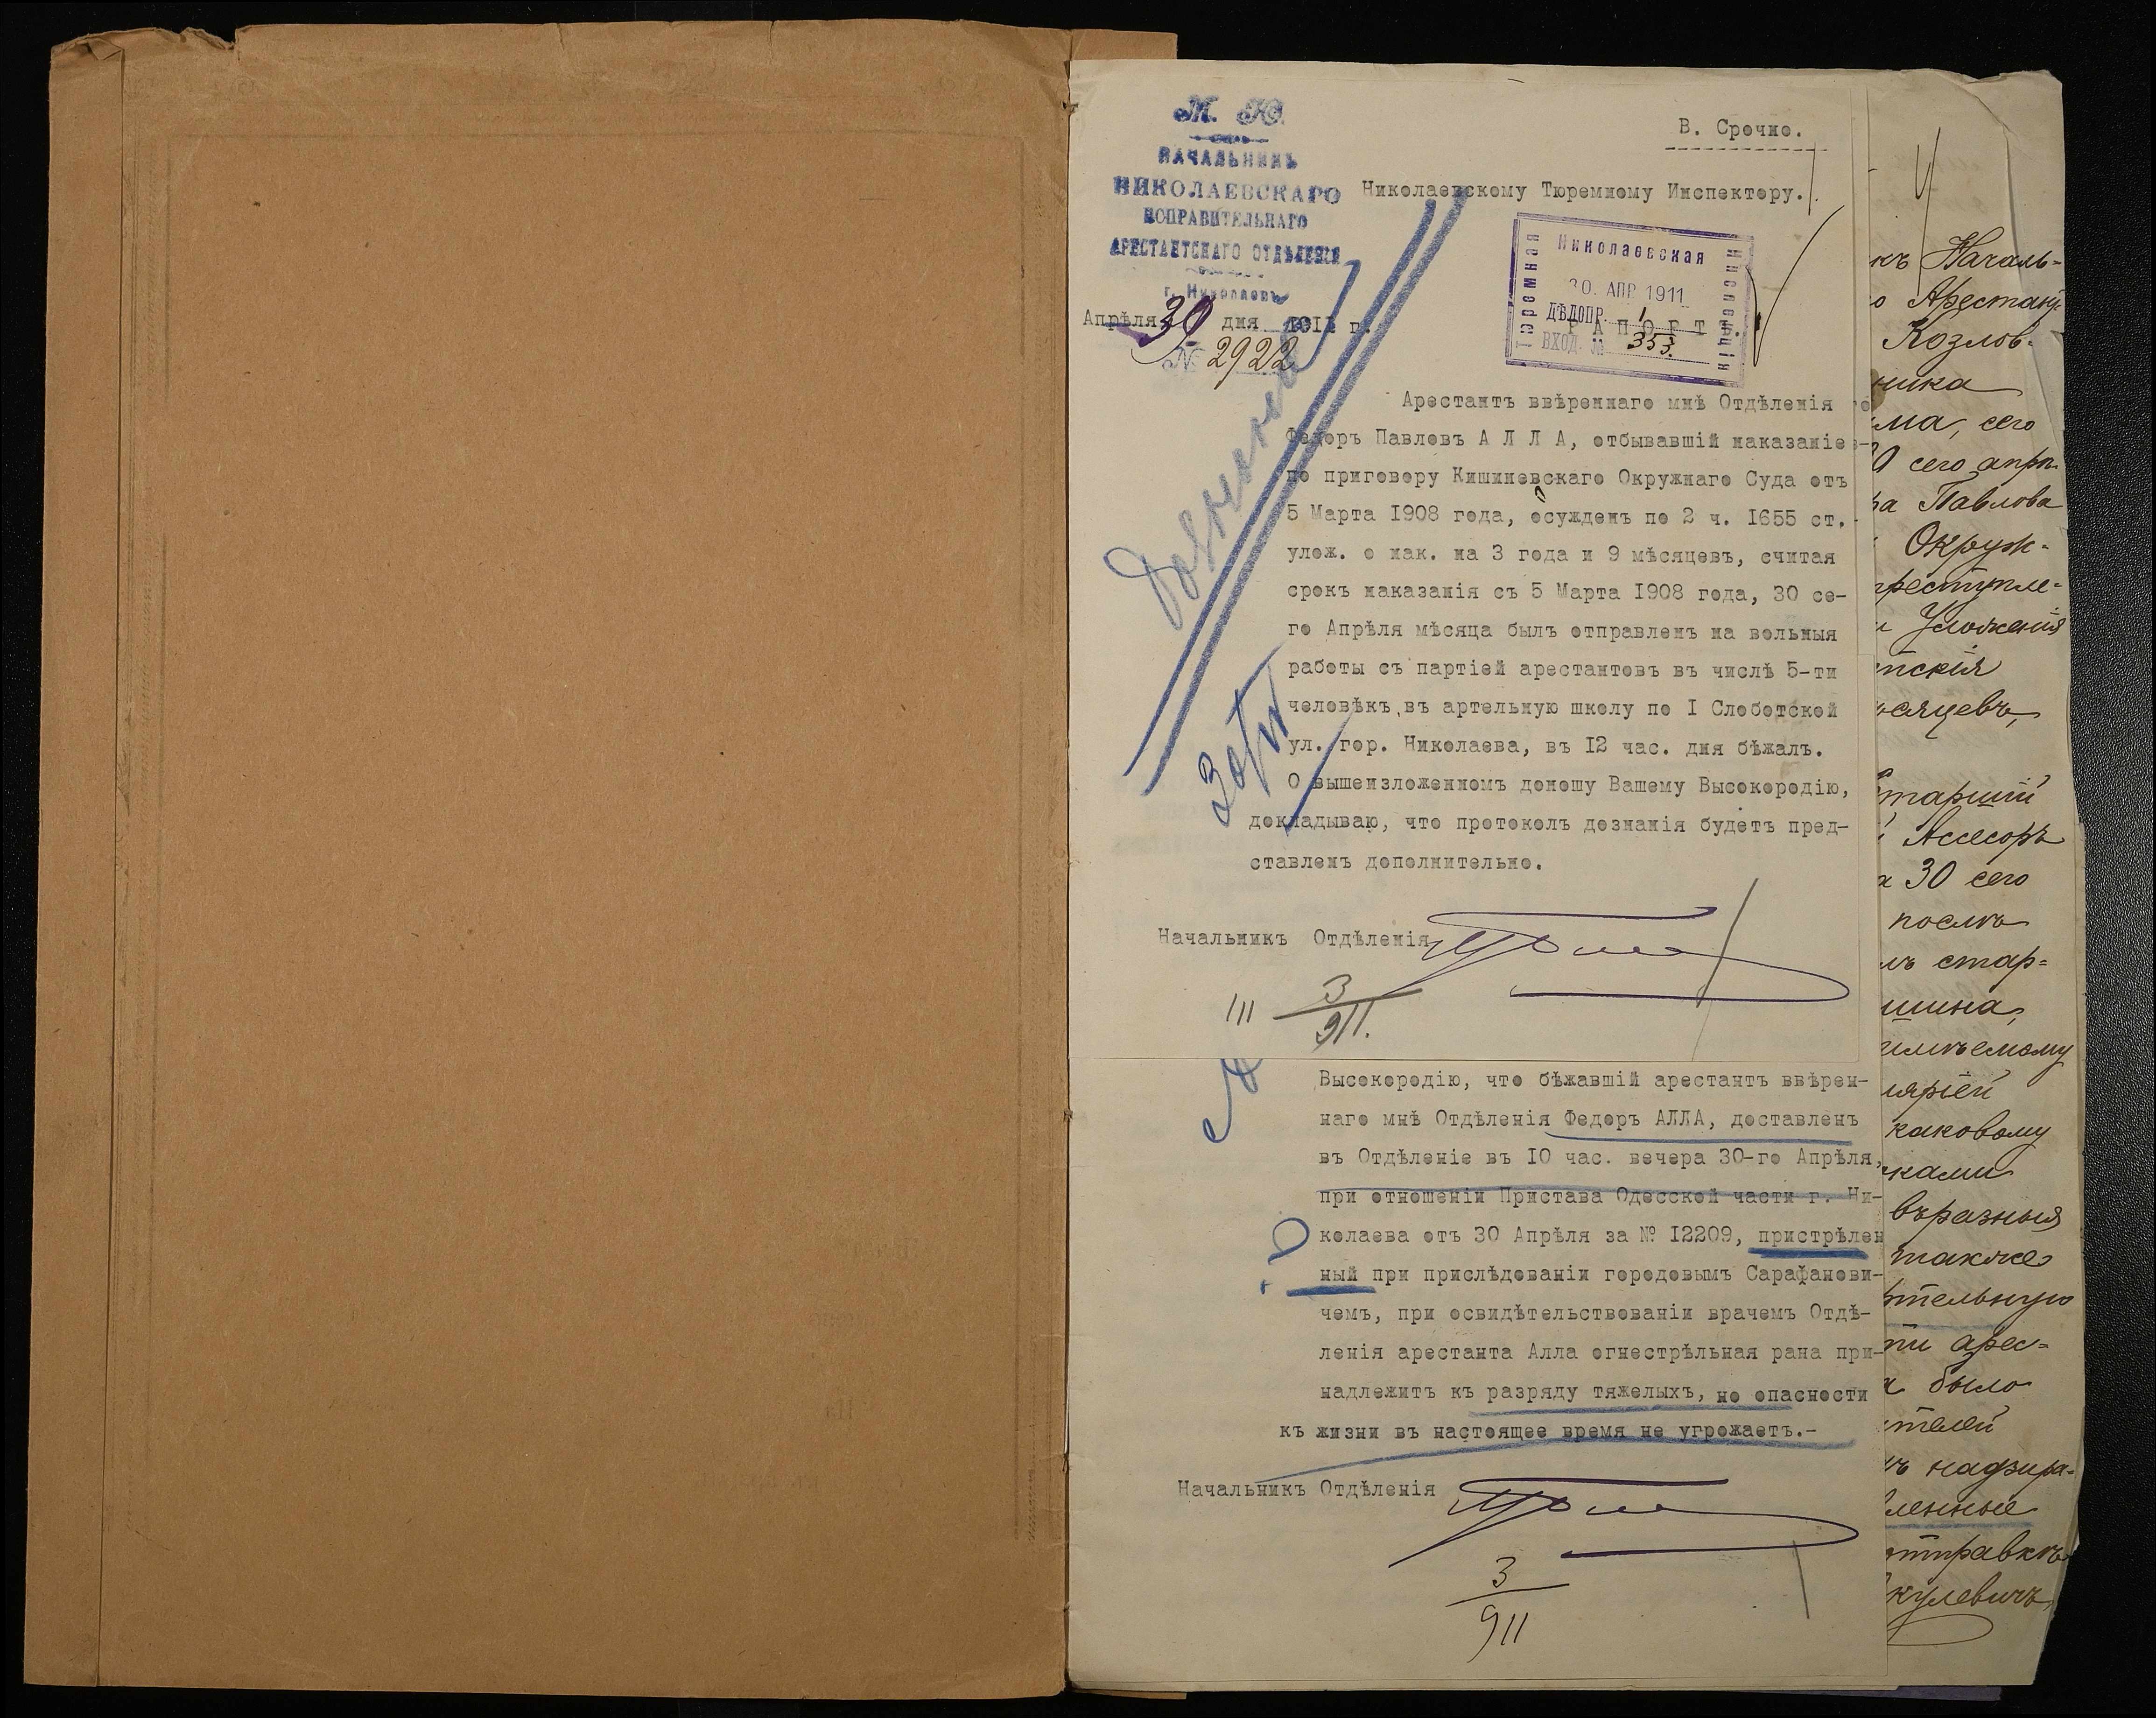 М. Ю.
НАЧАЛЬНИКЪ
НИКОЛАЕВСКАГО
ИСПРАВИТЕЛЬНАГО
АРЕСТАНТСКАГО ОТДѢЛЕНІЯ
г. Николаевъ
Апрѣля 30 дня 1911 г.
№ 2922
В. Срочно.
Николаевскому Тюремному Инспектору.
Николаевская
Тюремная
Инспекція
30. АПР 1911
ДѢЛОПР. 1
РАПОРТЪ.
ВХОД. № 353.
Арестантъ ввѣреннаго мнѣ Отдѣленія
Федоръ Павловъ А Л Л А, отбывавшій наказаніе
по приговору Кишиневскаго Окружнаго Суда отъ
5 Марта 1908 года, осужденъ по 2 ч. 1655 ст.
улож. о нак. на 3 года и 9 мѣсяцевъ, считая
срокъ наказанія съ 5 Марта 1908 года, 30 се-
го Апрѣля мѣсяца былъ отправленъ на вольныя
работы съ партіей арестантовъ въ числѣ 5-ти
человѣкъ въ артельную школу по I Слободской
ул. гор. Николаева, въ 12 час. дня бѣжалъ.
О вышеизложенномъ доношу Вашему Высокородію,
докладываю, что протоколъ дознанія будетъ пред-
ставленъ дополнительно.
Начальникъ Отдѣленія
III 3/911.
Высокородію, что бѣжавшій арестантъ ввѣрен-
наго мнѣ Отдѣленія Федоръ АЛЛА, доставленъ
въ Отдѣленіе въ 10 час. вечера 30-го Апрѣля,
при отношеніи Пристава Одесской части г. Ни-
колаева отъ 30 Апрѣля за № 12209, пристрѣлен
ный при прислѣдованіи городовымъ Сарафанови-
чемъ, при освидѣтельствованіи врачемъ Отдѣ-
ленія арестанта Алла огнестрѣльная рана при-
надлежитъ къ разряду тяжелыхъ, но опасности
къ жизни въ настоящее время не угрожаетъ.-
Начальникъ Отдѣленія
3/911
къ Началь-
Арестант
Козлов-
ника
ма, сего
30 сего апрѣ
ра Павлова
Окруж-
преступле-
Уложенія
тскія
мѣсяцевъ,
Старшій
Ассесоръ
30 сего
послѣ
стар-
шина,
каковому
въ разныя
также
артельную
арес-
было
телей
надзира-
ленные
отправкѣ
кулевичъ,